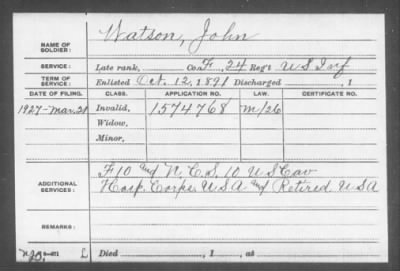 Watson, John
NAME OF SOLDIER:
SERVICE: Late rank, Co. F, 24 Reg't U S Inf
TERM OF SERVICE: Enlisted Oct. 12, 1891 Discharged , 1
DATE OF FILING. CLASS. APPLICATION NO. LAW. CERTIFICATE NO.
1927-Mar. 21 Invalid, 1574768 M/26
Widow,
Minor,
F 10 and N. C. S. 10 U S Cav
ADDITIONAL SERVICES: Hosp. Corps. U S A and Retired U S A
REMARKS:
Died , 1 , at